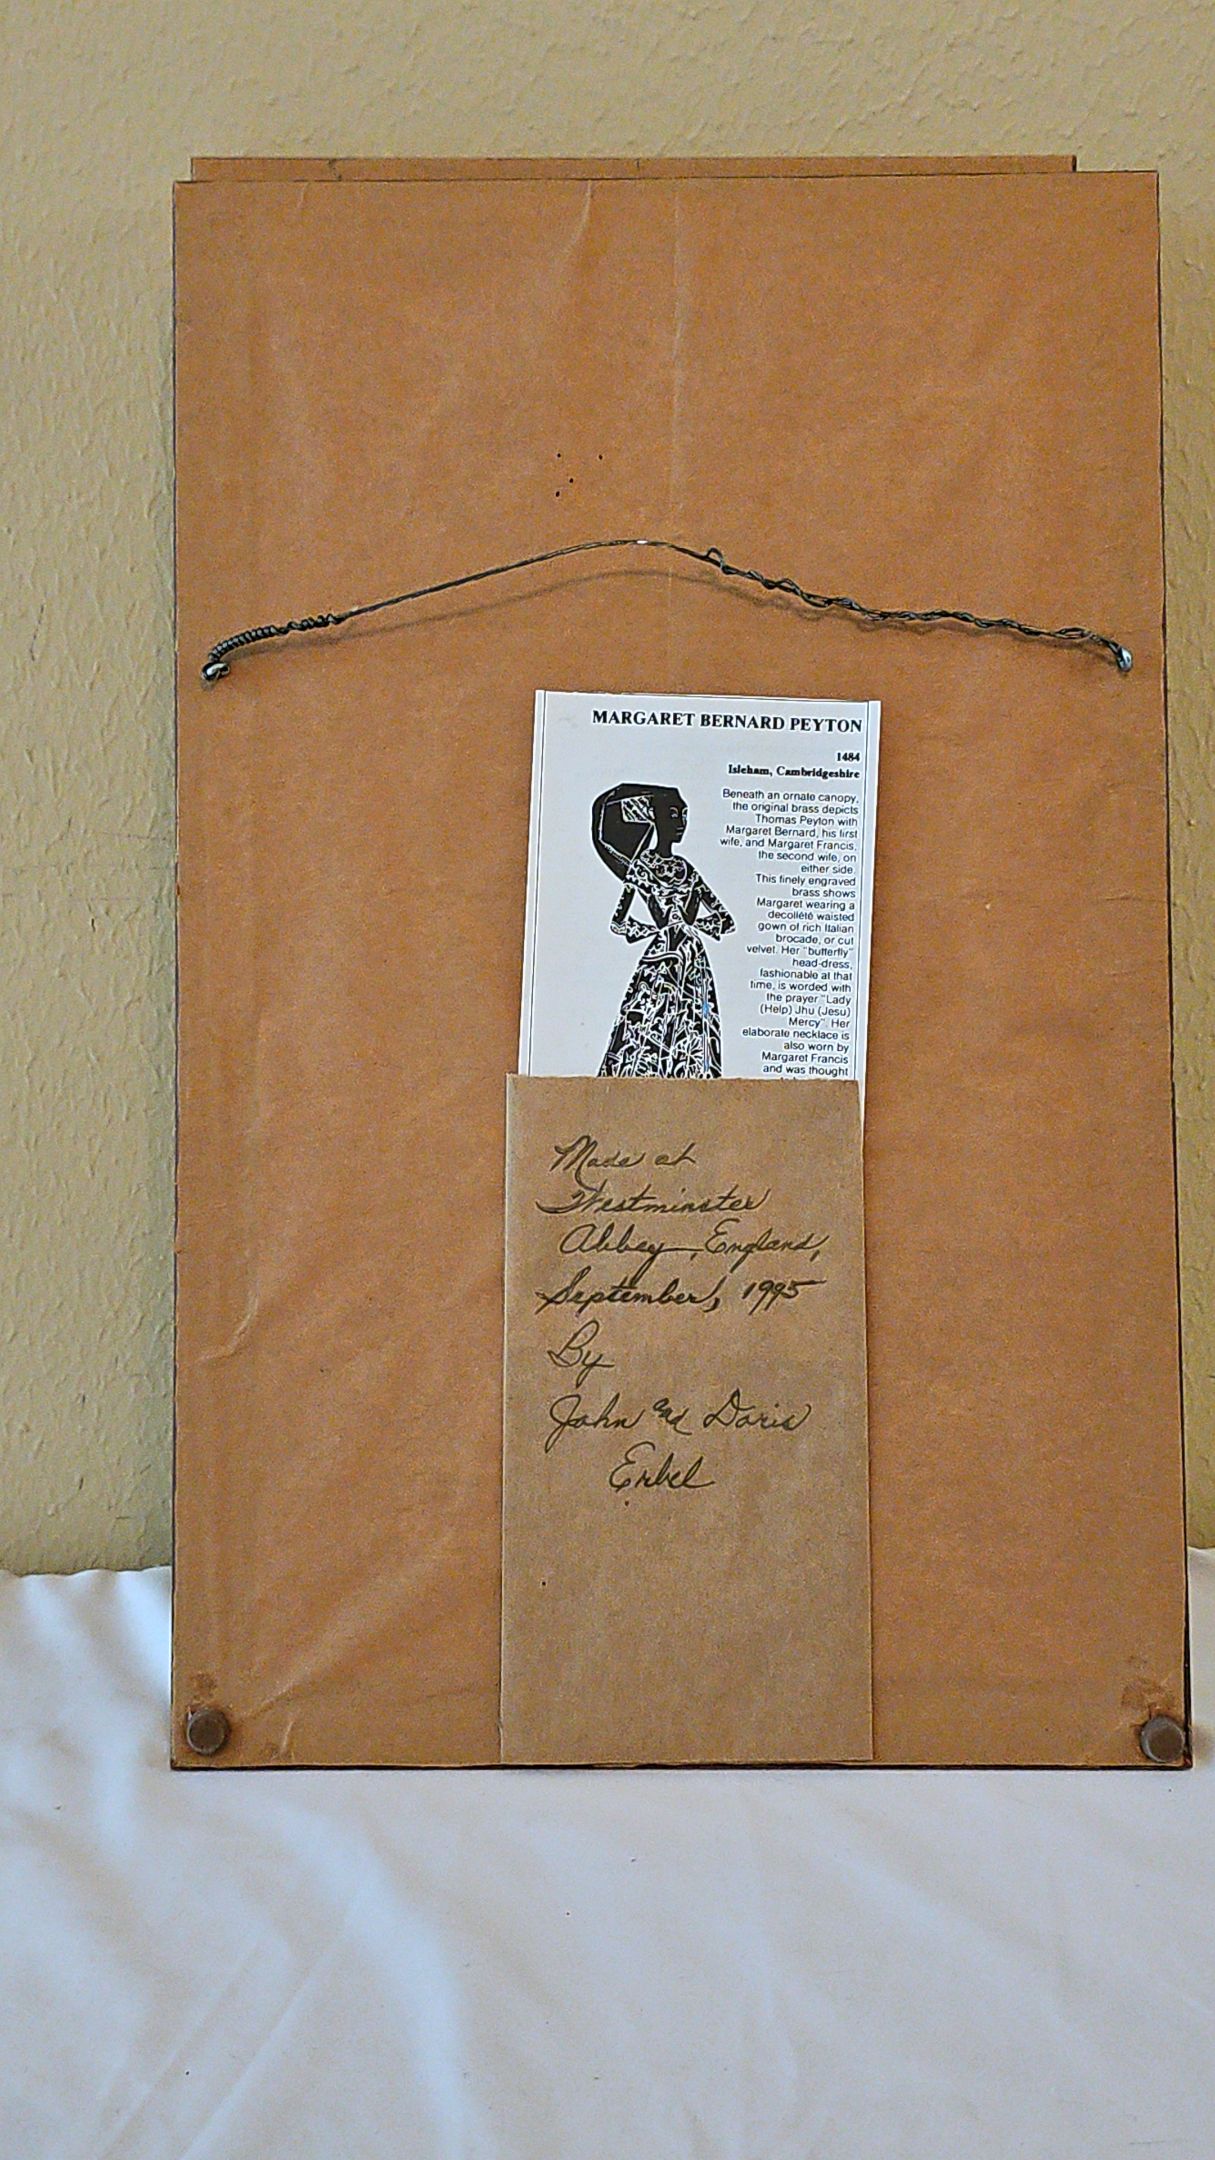 MARGARET BERNARD PEYTON
1484
Isleham, Cambridgeshire
Beneath an ornate canopy,
the original brass depicts
Thomas Peyton with
Margaret Bernard, his first
wife, and Margaret Francis,
the second wife, on
either side.
This finely engraved
brass shows
Margaret wearing a
decolleté waisted
gown of rich Italian
brocade, or cut
velvet. Her "butterfly"
head-dress,
fashionable at that
time, is worded with
the prayer "Lady
(Help) Jhu (Jesu)
Mercy". Her
elaborate necklace is
also worn by
Margaret Francis
and was thought
Made at
Westminster
Abbey, England,
September, 1995
By
John and Doris
Erbel